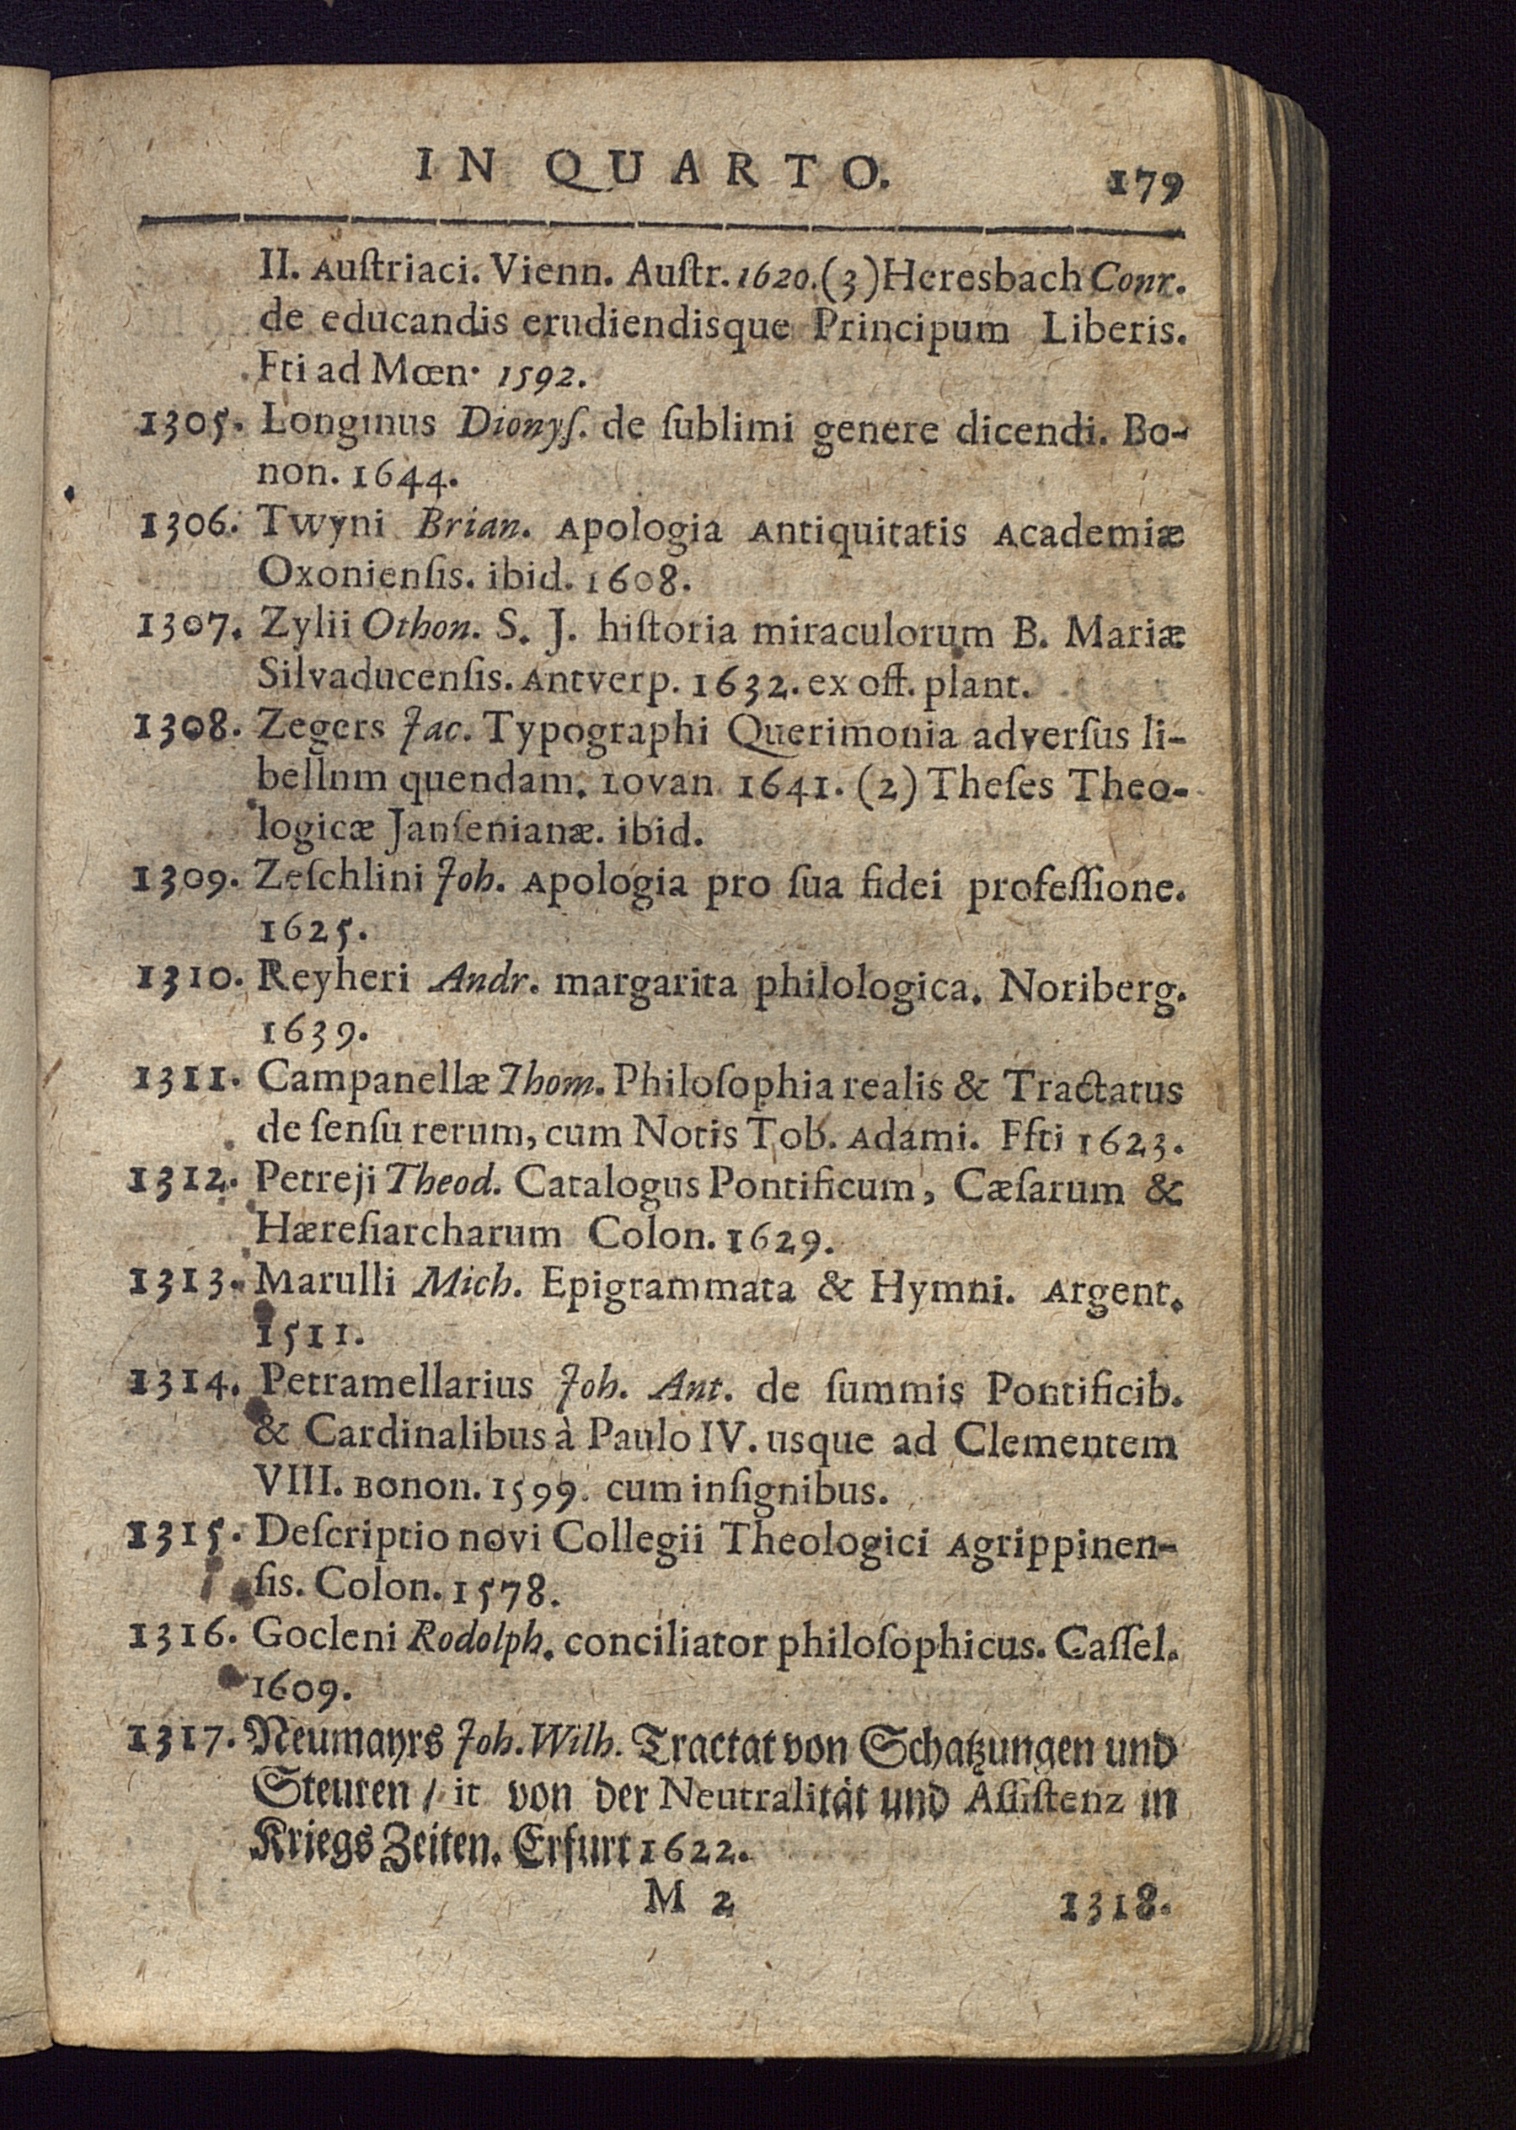 IN QUARTO. 179
II. Auſtriaci. Vienn. Auſtr. 1620. (3) Heresbach Conr.
de educandis erudiendisque Principum Liberis.
Fti ad Mœn. 1592.
1305. Longinus Dionyſ. de ſublimi genere dicendi. Bo-
non. 1644.
1306. Twyni Brian. Apologia Antiquitatis Academiæ
Oxonienſis. ibid. 1608.
1307. Zylii Othon. S. J. hiſtoria miraculorum B. Mariæ
Silvaducenſis. Antverp. 1632. ex off. plant.
1308. Zegers Jac. Typographi Querimonia adverſus li-
bellnm quendam. Lovan. 1641. (2) Theſes Theo-
logicæ Janſenianæ. ibid.
1309. Zeſchlini Joh. Apologia pro ſua fidei profeſſione.
1625.
1310. Reyheri Andr. margarita philologica. Noriberg.
1639.
1311. Campanellæ Thom. Philoſophia realis & Tractatus
de ſenſu rerum, cum Notis Tob. Adami. Ffti 1623.
1312. Petreji Theod. Catalogus Pontificum, Cæſarum &
Hæreſiarcharum Colon. 1629.
1313. Marulli Mich. Epigrammata & Hymni. Argent.
1511.
1314. Petramellarius Joh. Ant. de ſummis Pontificib.
& Cardinalibus à Paulo IV. usque ad Clementem
VIII. Bonon. 1599. cum inſignibus.
1315. Deſcriptio novi Collegii Theologici Agrippinen-
ſis. Colon. 1578.
1316. Gocleni Rodolph. conciliator philoſophicus. Caſſel.
1609.
1317. Neumayrs Joh. Wilh. Tractat von Schatzungen und
Steuren / it von der Neutralität und Aſſiſtenz in
Kriegs Zeiten. Erfurt 1622.
M 2 1318.